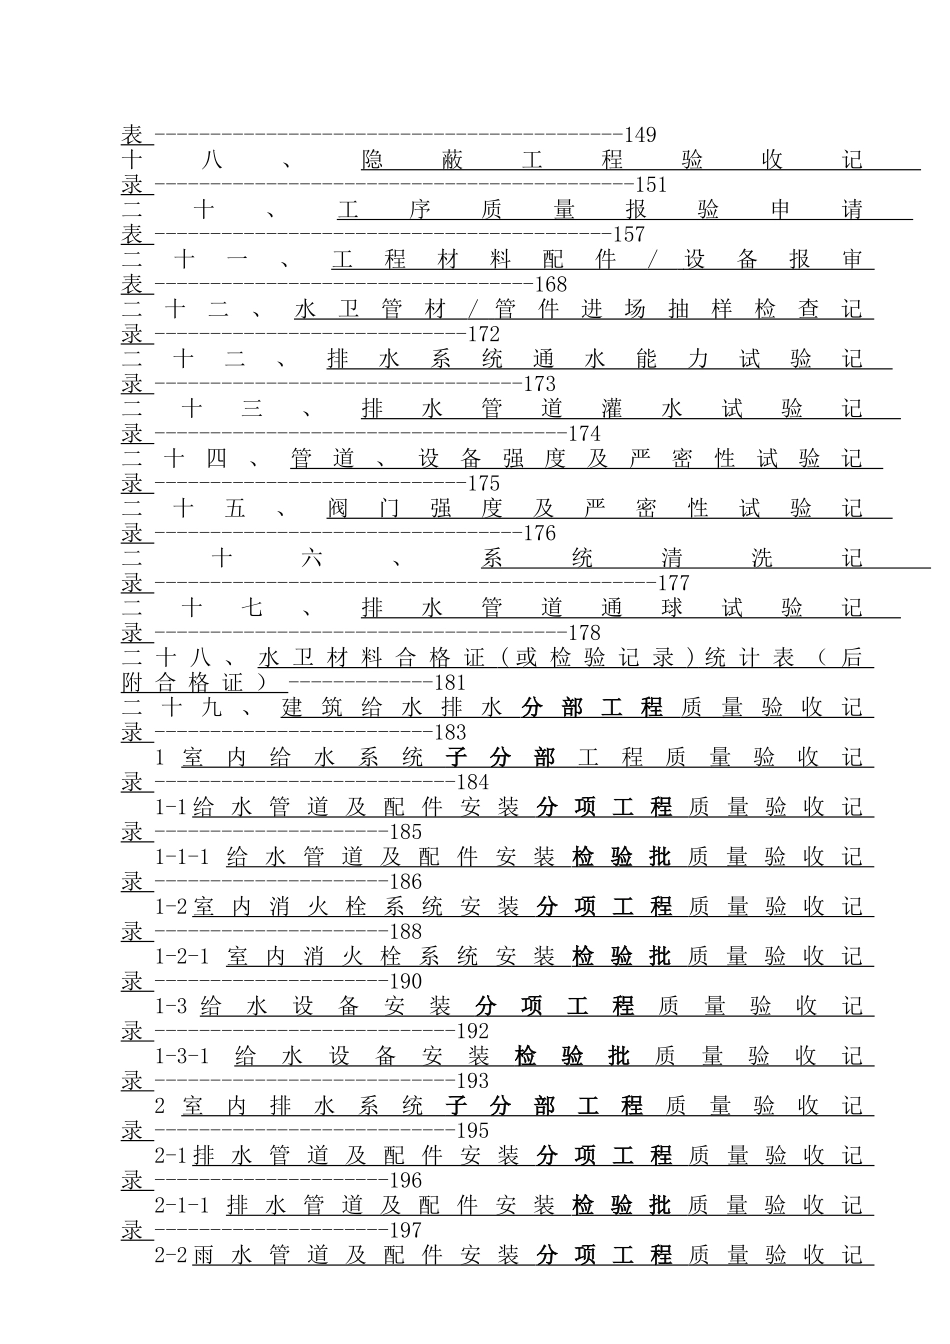 表 ------------------------------------------149
十八、隐蔽工程验收记
录 -------------------------------------------151
二十、工序质量报验申请
表 -----------------------------------------157
二十一、工程材料配件/设备报审
表 ----------------------------------168
二十二、水卫管材/管件进场抽样检查记
录 ----------------------------172
二十二、排水系统通水能力试验记
录 ---------------------------------173
二十三、排水管道灌水试验记
录 -------------------------------------174
二十四、管道、设备强度及严密性试验记
录 ----------------------------175
二十五、阀门强度及严密性试验记
录 ---------------------------------176
二十六、系统清洗记
录 ---------------------------------------------177
二十七、排水管道通球试验记
录 -------------------------------------178
二十八、水卫材料合格证(或检验记录)统计表（后
附合格证） -------------181
二十九、建筑给水排水分部工程质量验收记
录 -------------------------183
1 室内给水系统子分部工程质量验收记
录 ---------------------------184
1-1 给水管道及配件安装分项工程质量验收记
录 ---------------------185
1-1-1 给水管道及配件安装检验批质量验收记
录 ---------------------186
1-2 室内消火栓系统安装分项工程质量验收记
录 ---------------------188
1-2-1 室内消火栓系统安装检验批质量验收记
录 ---------------------190
1-3 给水设备安装分项工程质量验收记
录 ---------------------------192
1-3-1 给水设备安装检验批质量验收记
录 ---------------------------193
2 室内排水系统子分部工程质量验收记
录 ---------------------------195
2-1 排水管道及配件安装分项工程质量验收记
录 ---------------------196
2-1-1 排水管道及配件安装检验批质量验收记
录 ---------------------197
2-2 雨水管道及配件安装分项工程质量验收记